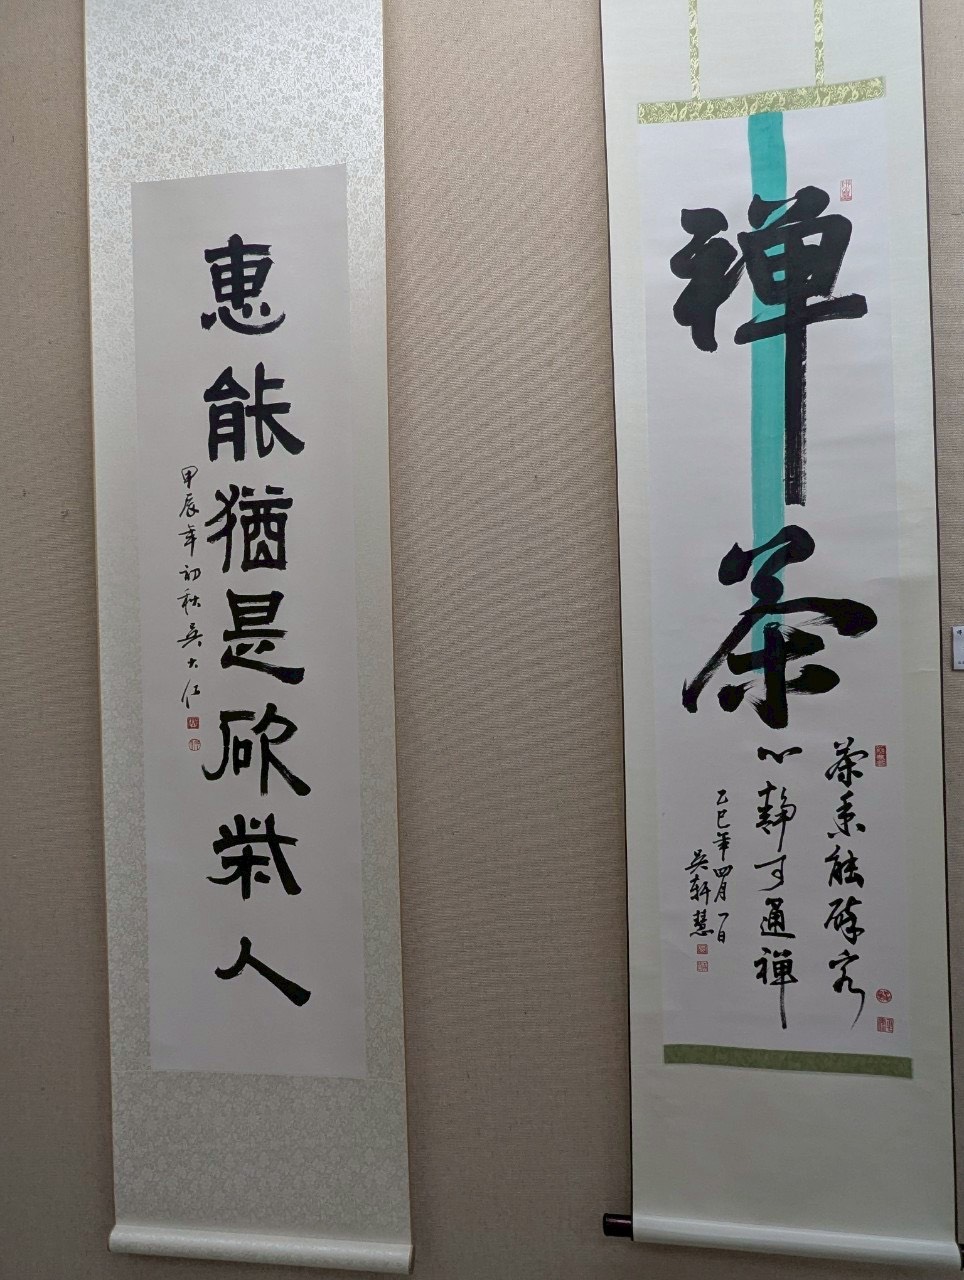 禅茶
茶香能醉客
心静可通禅
乙巳年四月一日
吳軒慧
惠能猶是砍柴人
甲辰年初秋吳大仁